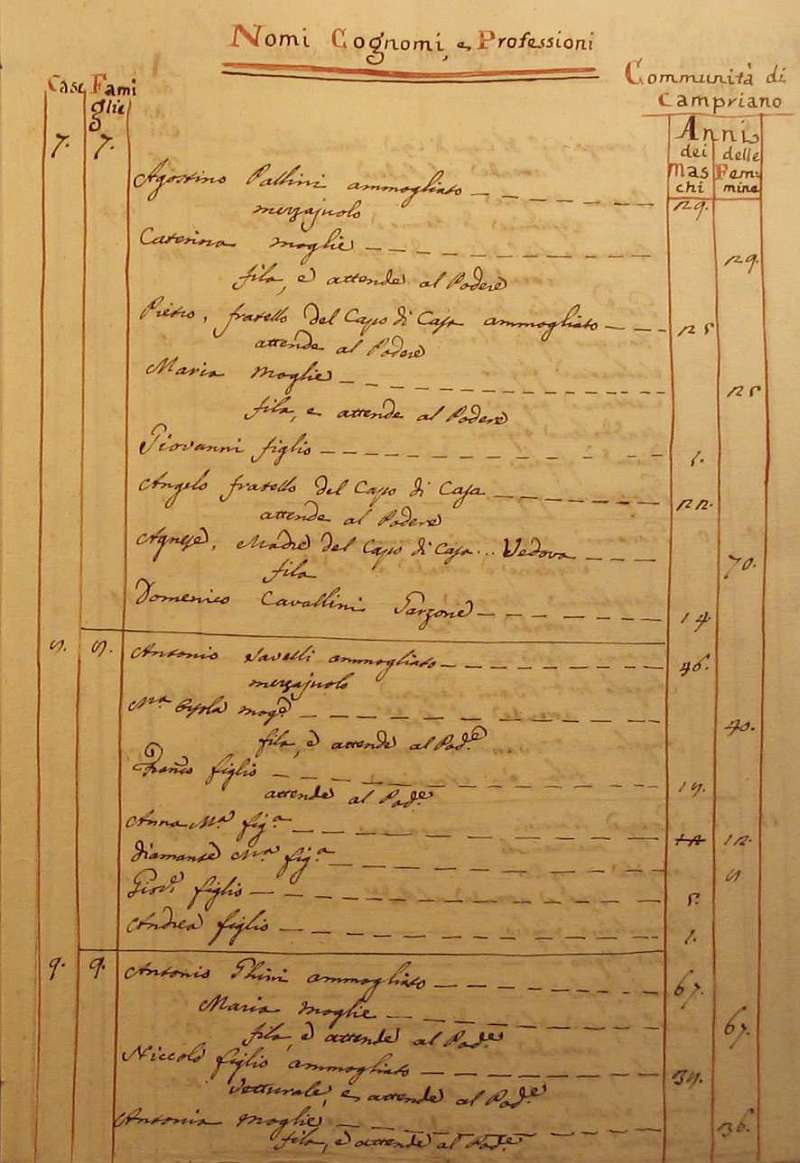 Nomi Cognomi, e, Professioni
Communità di
Campriano
Case Fami
glie
Anni
dei delle
Mas Fem
chi mine
7. 7.
Agostino Pallini ammogliato 29.
mezzajuolo
Caterina moglie 29.
fila, e attende al Podere
Pietro, fratello del Capo di Casa ammogliato 25
attende al Podere
Maria Moglie 25
fila, e attende al Podere
Giovanni figlio 1.
Angelo fratello del Capo di Casa 22.
attende al Podere
Agnese, Madre del Capo di Casa... Vedova 70.
fila
Domenico Cavallini Garzone 14
8. 8. Antonio Savelli ammogliato 46.
mezzajuolo
M.a Orsola mog.e 40.
fila, e attende al Pod.e
Franco figlio
attende al Pod.e
Anna M.a fig.a 12 12.
Diamante M.a fig.a 8
Giov.i figlio 5.
Andrea figlio 1.
9. 9. Antonio Ghini ammogliato 67.
Maria Moglie 67.
fila, e attende al Pod.e
Niccolò figlio ammogliato
Vetturale, e, attende al Pod.e
Antonia Moglie 36.
fila, e attende al Pod.e